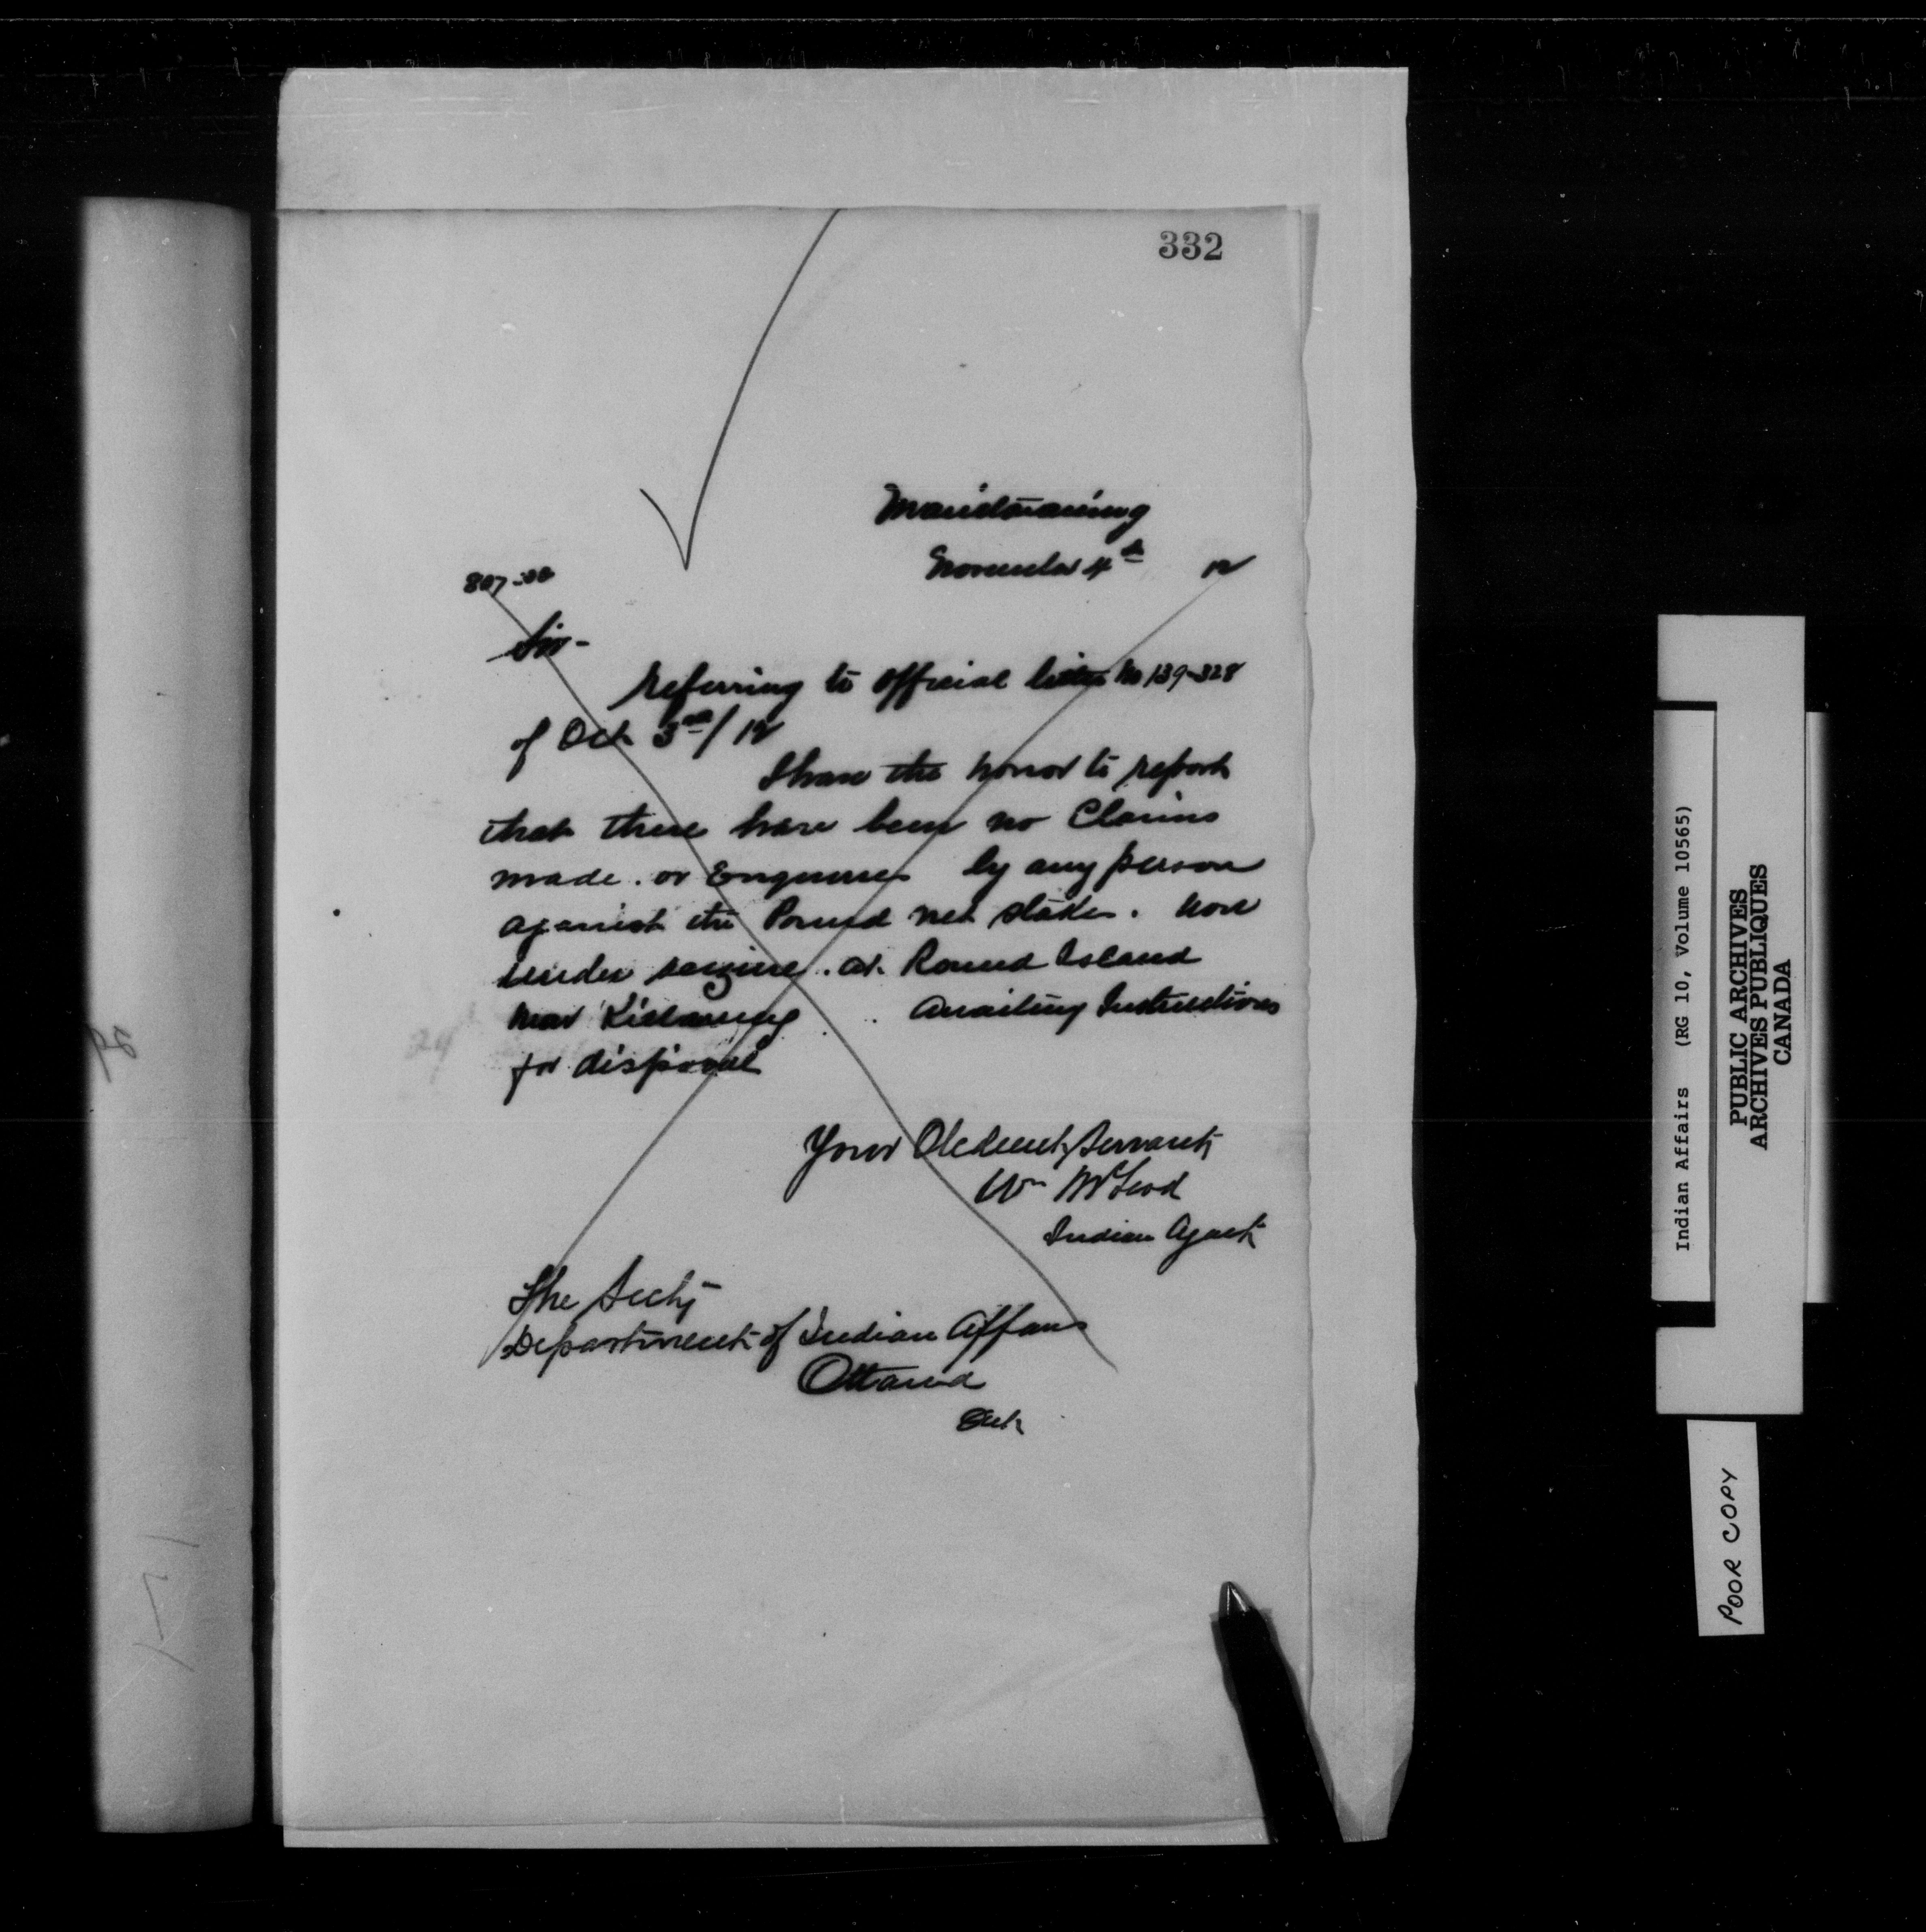 332
Manitowaning
November 4th 12
Sir -
Referring to official letter No 139-328
of Oct 3rd/12
I have the honor to report
that there have been no Claims
made. or Enquiries by any person
against the Pound net stakes. now
under seizure. at Round Island
near Killarney . . awaiting Instructions
for disposal
Your Obedient Servant
Wm McLeod
Indian Agent
The Secty
Department of Indian Affairs
Ottawa
Ont
Indian Affairs (RG 10, Volume 10565)
PUBLIC ARCHIVES
ARCHIVES PUBLIQUES
CANADA
POOR COPY